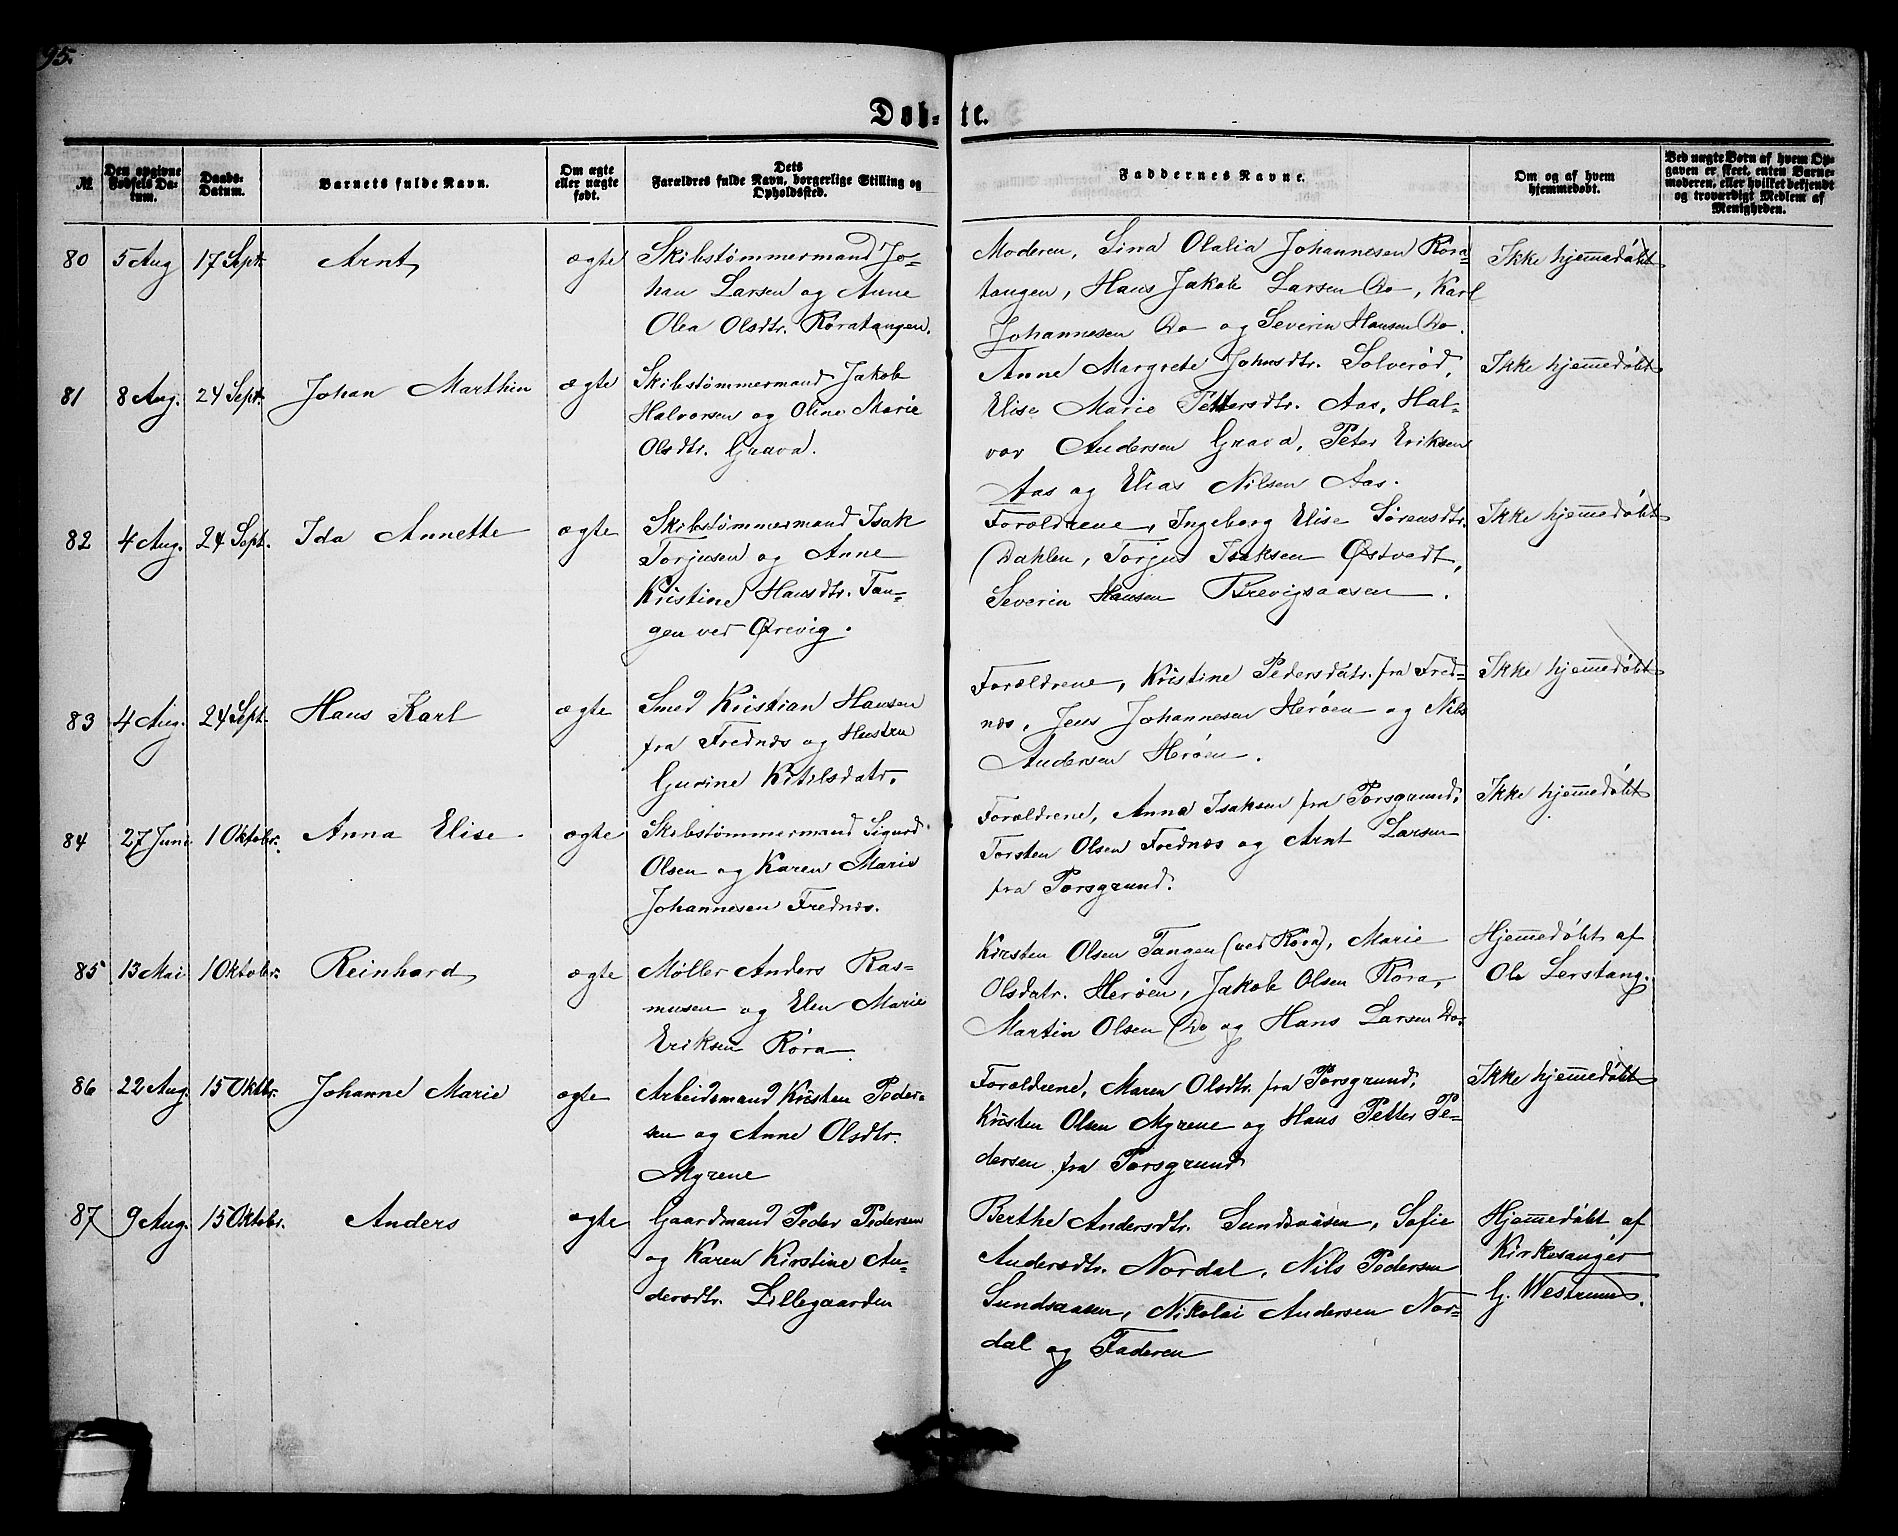 95.
Døb-te.
№
Den opgivne Fødsels Da-tum.
Daabs-Datum.
Barnets fulde Navn.
Om ægte eller uægte født.
Dets Forældres fulde Navn, borgerlige Stilling og Opholdssted.
Faddernes Navne.
Om og af hvem hjemmedøbt.
Ved uægte Børn af hvem Op-gaven er skeet, enten Barne-moderen, eller hvilket bekjendt og troværdigt Medlem af Menigheden.
80 5 Aug 17 Sept. Arnt ægte Skibstømmermand Jo-
han Larsen og Anne
Olea Olsdtr. Røratangen.
Moderen, Sina Olalia Johannesen Røra-
tangen, Hans Jakob Larsen Do, Karl
Johannesen Do og Severin Hansen Do.
Ikke hjemmedøbt
81 8 Aug. 24 Sept. Johan Marthin ægte Skibstømmermand Jakob
Halvorsen og Oline Marie
Olsdtr. Grava.
Anne Margrete Johnsdtr. Solverød,
Elise Marie Pettersdtr. Aas, Hal-
vor Andersen Grava, Peter Eriksen
Aas og Elias Nilsen Aas.
Ikke hjemmedøbt
82 4 Aug. 24 Sept. Ida Annette ægte Skibstømmermand Isak
Torjusen og Anne
Kristine Hansdtr. Tan-
gen ved Ørevig.
Forældrene, Ingeborg Elise Sørensdtr.
Dahlen, Torjus Isaksen Østvedt,
Severin Hansen Brevigsaasen.
Ikke hjemmedøbt
83 4 Aug. 24 Sept. Hans Karl ægte Smed Kristian Hansen
fra Frednæs og Hustru
Gurine Ketilsdatr.
Forældrene, Kristine Pedersdatr. fra Fred-
næs, Jens Johannesen Herøen og Nils
Andersen Herøen.
Ikke hjemmedøbt
84 27 Juni 1 Oktobr. Anna Elise ægte Skibstømmermand Sigurd
Olsen og Karen Marie
Johannesen Frednæs.
Forældrene, Anna Isaksen fra Porsgrund,
Torsten Olsen Frednæs og Arnt Larsen
fra Porsgrund.
Ikke hjemmedøbt
85 13 Mai 1 Oktobr. Reinhard ægte Møller Anders Ras-
musen og Elen Marie
Eriksen Røra.
Kirsten Olsen Tangen (ved Røra), Marie
Olsdatr. Herøen, Jakob Olsen Røra,
Martin Olsen Do og Hans Larsen Do.
Hjemmedøbt af
Ole Lerstang.
86 22 Aug. 15 Oktbr. Johanne Marie ægte Arbeidsmand Kristen Peder-
sen og Anne Olsdtr.
Myrene
Forældrene, Maren Olsdtr. fra Porsgrund,
Kristen Olsen Myrene og Hans Petter Pe-
dersen fra Porsgrund
Ikke hjemmedøbt
87 9 Aug. 15 Oktobr. Anders ægte Gaardmand Peder Pedersen
og Karen Kirstine An-
dersdtr. Lillegaarden
Berthe Andersdtr. Sundsaasen, Sofie
Andersdtr. Nordal, Nils Pedersen
Sundsaasen, Nikolai Andersen Nor-
dal og Faderen
Hjemmedøbt af
Kirkesanger
G. Westrum.